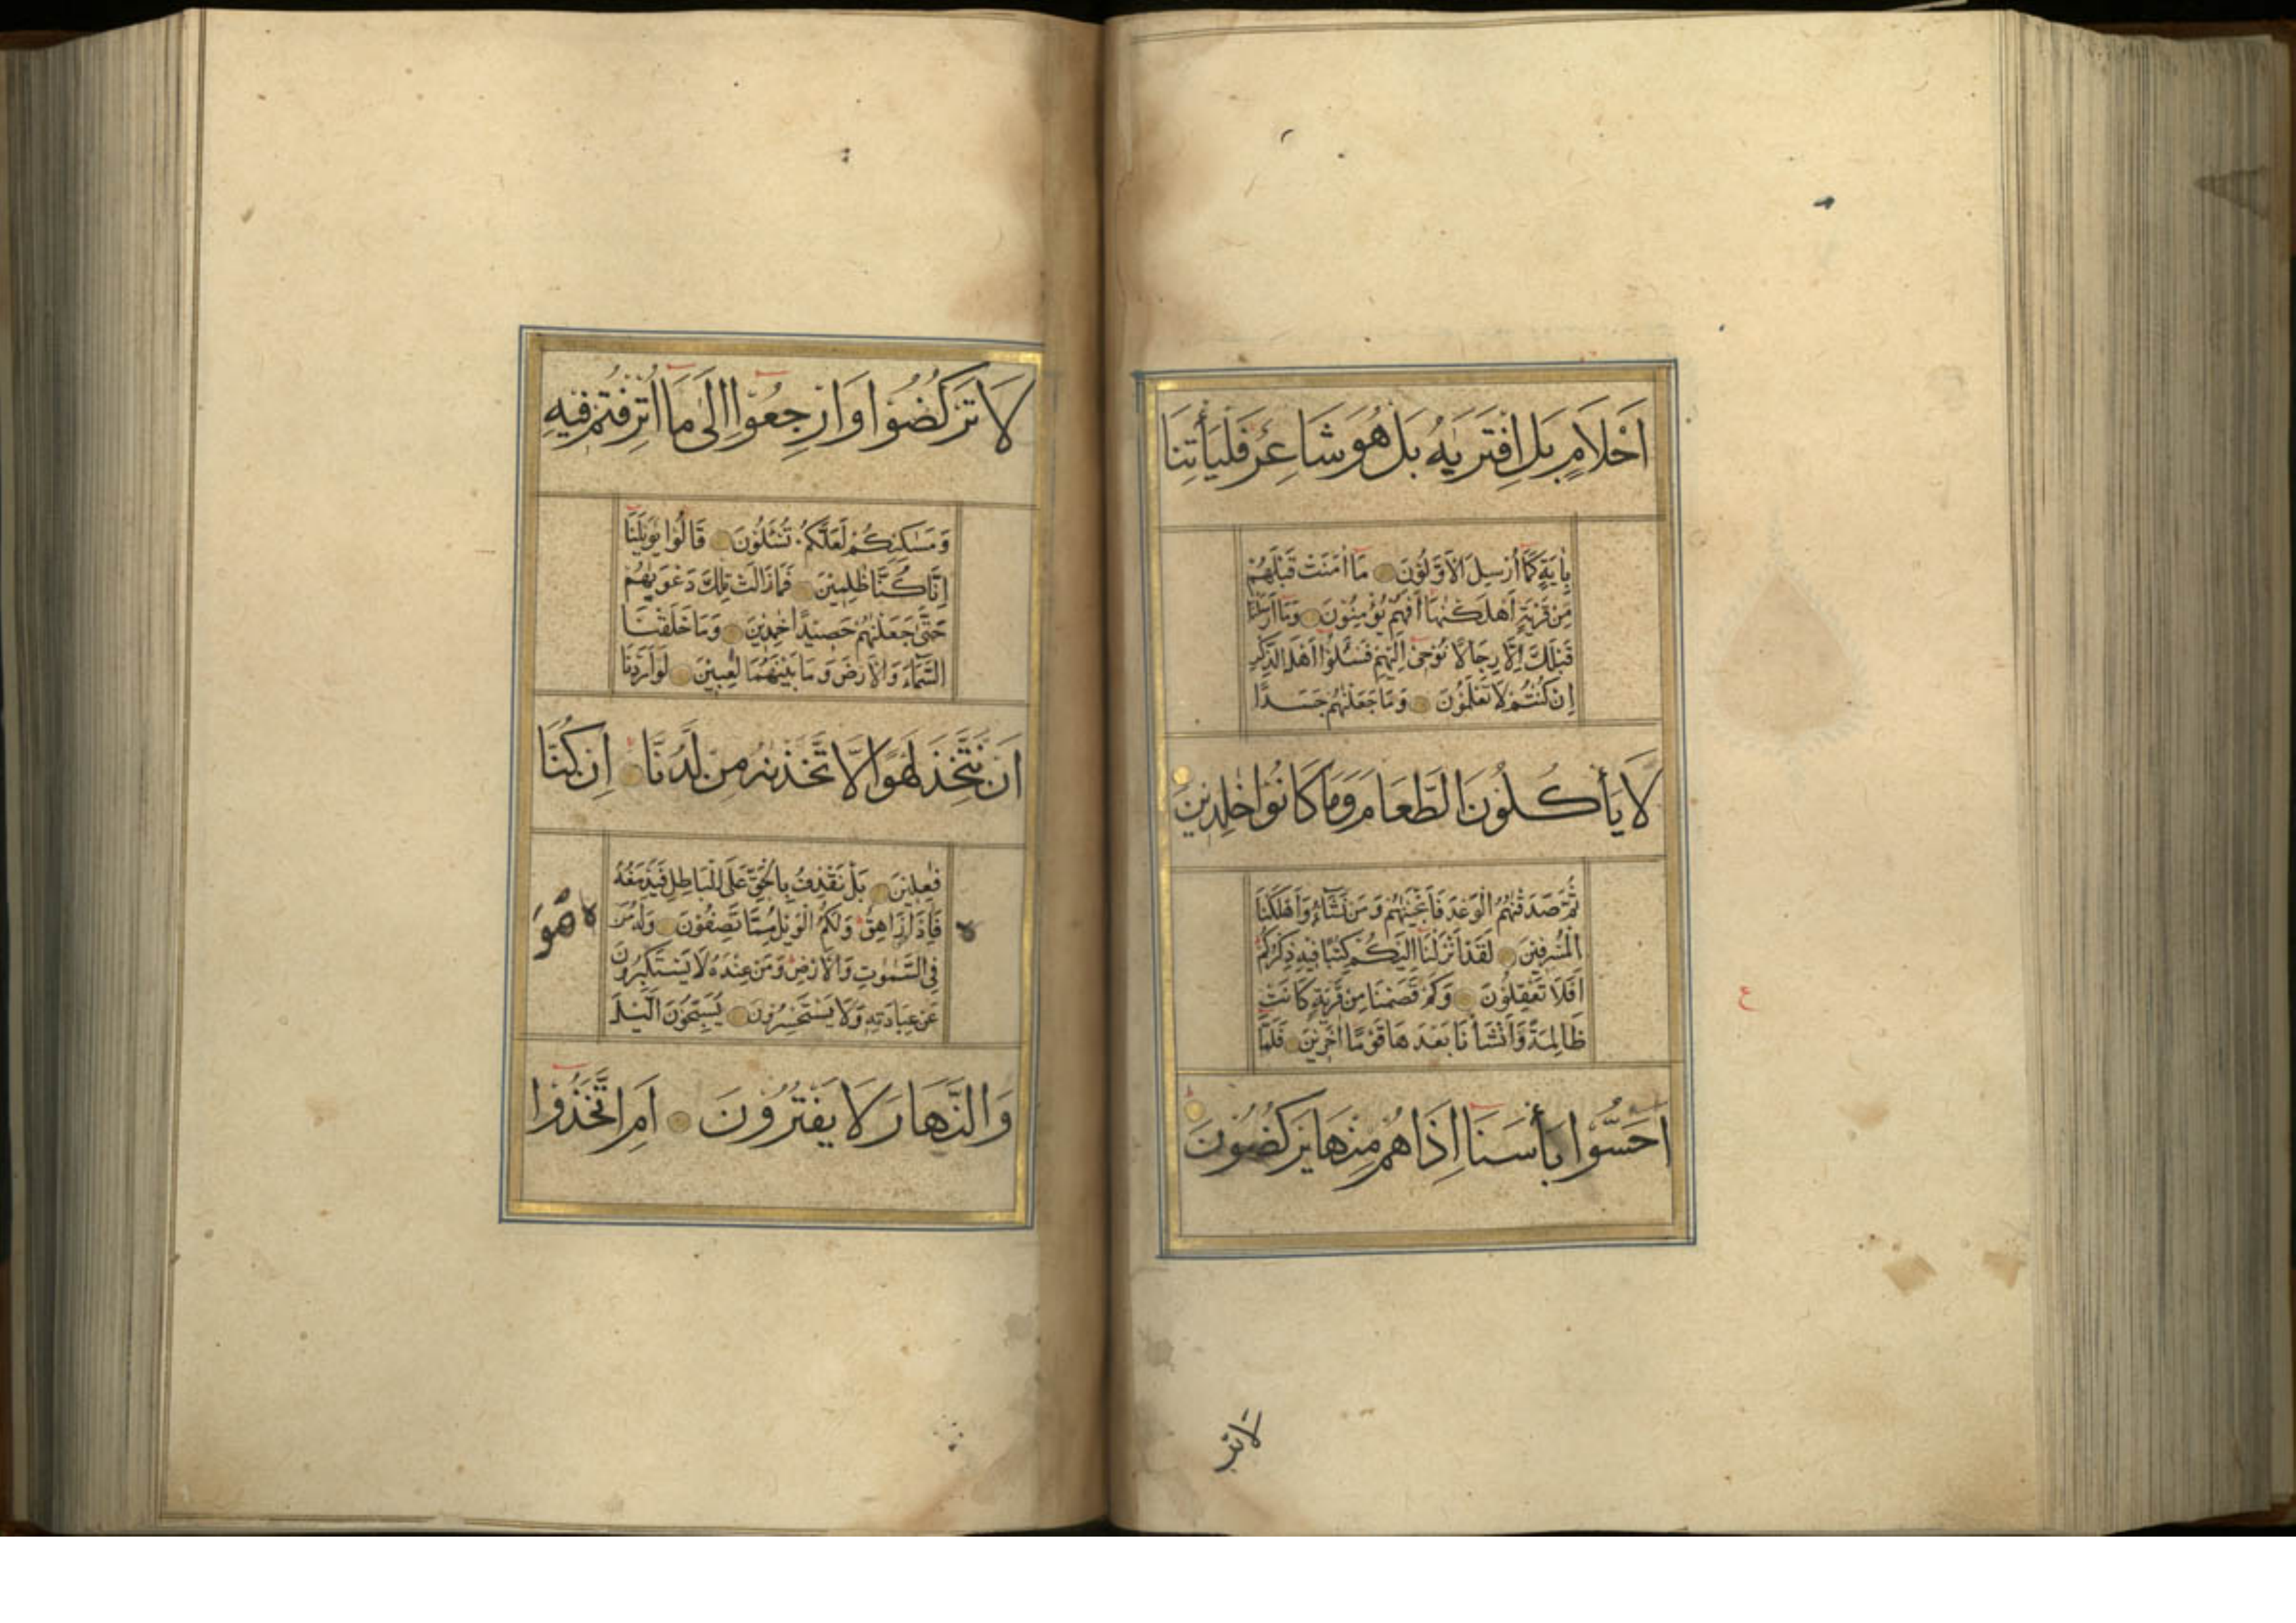 اَحْلَامٍ بَلِ افْتَرٰيهُ بَلْ هُوَ شَاعِرٌ فَلْيَأْتِنَا
بِاٰيَةٍ كَمَٓا اُرْسِلَ الْاَوَّلُونَ مَٓا اٰمَنَتْ قَبْلَهُمْ
مِنْ قَرْيَةٍ اَهْلَكْنٰهَا اَفَهُمْ يُؤْمِنُونَ وَمَٓا اَرْسَلْنَا
قَبْلَكَ اِلَّا رِجَالًا نُوحٖٓى اِلَيْهِمْ فَسْـَٔلُٓوا اَهْلَ الذِّكْرِ
اِنْ كُنْتُمْ لَا تَعْلَمُونَ وَمَا جَعَلْنٰهُمْ جَسَدًا
لَا يَأْكُلُونَ الطَّعَامَ وَمَا كَانُوا خٰلِدِينَ
ثُمَّ صَدَقْنٰهُمُ الْوَعْدَ فَاَنْجَيْنٰهُمْ وَمَنْ نَشَٓاءُ وَاَهْلَكْنَا
الْمُسْرِفِينَ لَقَدْ اَنْزَلْنَٓا اِلَيْكُمْ كِتٰبًا فِيهِ ذِكْرُكُمْ
اَفَلَا تَعْقِلُونَ وَكَمْ قَصَمْنَا مِنْ قَرْيَةٍ كَانَتْ
ظَالِمَةً وَاَنْشَأْنَا بَعْدَهَا قَوْمًا اٰخَرِينَ فَلَمَّٓا
اَحَسُّوا بَأْسَنَٓا اِذَا هُمْ مِنْهَا يَرْكُضُونَ
ع
لَا تَرْ
لَا تَرْكُضُوا وَارْجِعُٓوا اِلٰى مَٓا اُتْرِفْتُمْ فِيهِ
وَمَسٰكِنِكُمْ لَعَلَّكُمْ تُسْـَٔلُونَ قَالُوا يٰوَيْلَنَٓا
اِنَّا كُنَّا ظٰلِمِينَ فَمَا زَالَتْ تِلْكَ دَعْوٰيهُمْ
حَتّٰى جَعَلْنٰهُمْ حَصِيدًا خٰمِدِينَ وَمَا خَلَقْنَا
السَّمَٓاءَ وَالْاَرْضَ وَمَا بَيْنَهُمَا لٰعِبِينَ لَوْ اَرَدْنَٓا
اَنْ نَتَّخِذَ لَهْوًا لَاتَّخَذْنٰهُ مِنْ لَدُنَّا اِنْ كُنَّا
فٰعِلِينَ بَلْ نَقْذِفُ بِالْحَقِّ عَلَى الْبَاطِلِ فَيَدْمَغُهُ
فَاِذَا زَاهِقٌ وَلَكُمُ الْوَيْلُ مِمَّا تَصِفُونَ وَلَهُ مَنْ
هُوَ
فِي السَّمٰوٰتِ وَالْاَرْضِ وَمَنْ عِنْدَهُ لَا يَسْتَكْبِرُونَ
عَنْ عِبَادَتِهِ وَلَا يَسْتَحْسِرُونَ يُسَبِّحُونَ الَّيْلَ
وَالنَّهَارَ لَا يَفْتُرُونَ اَمِ اتَّخَذُٓوا